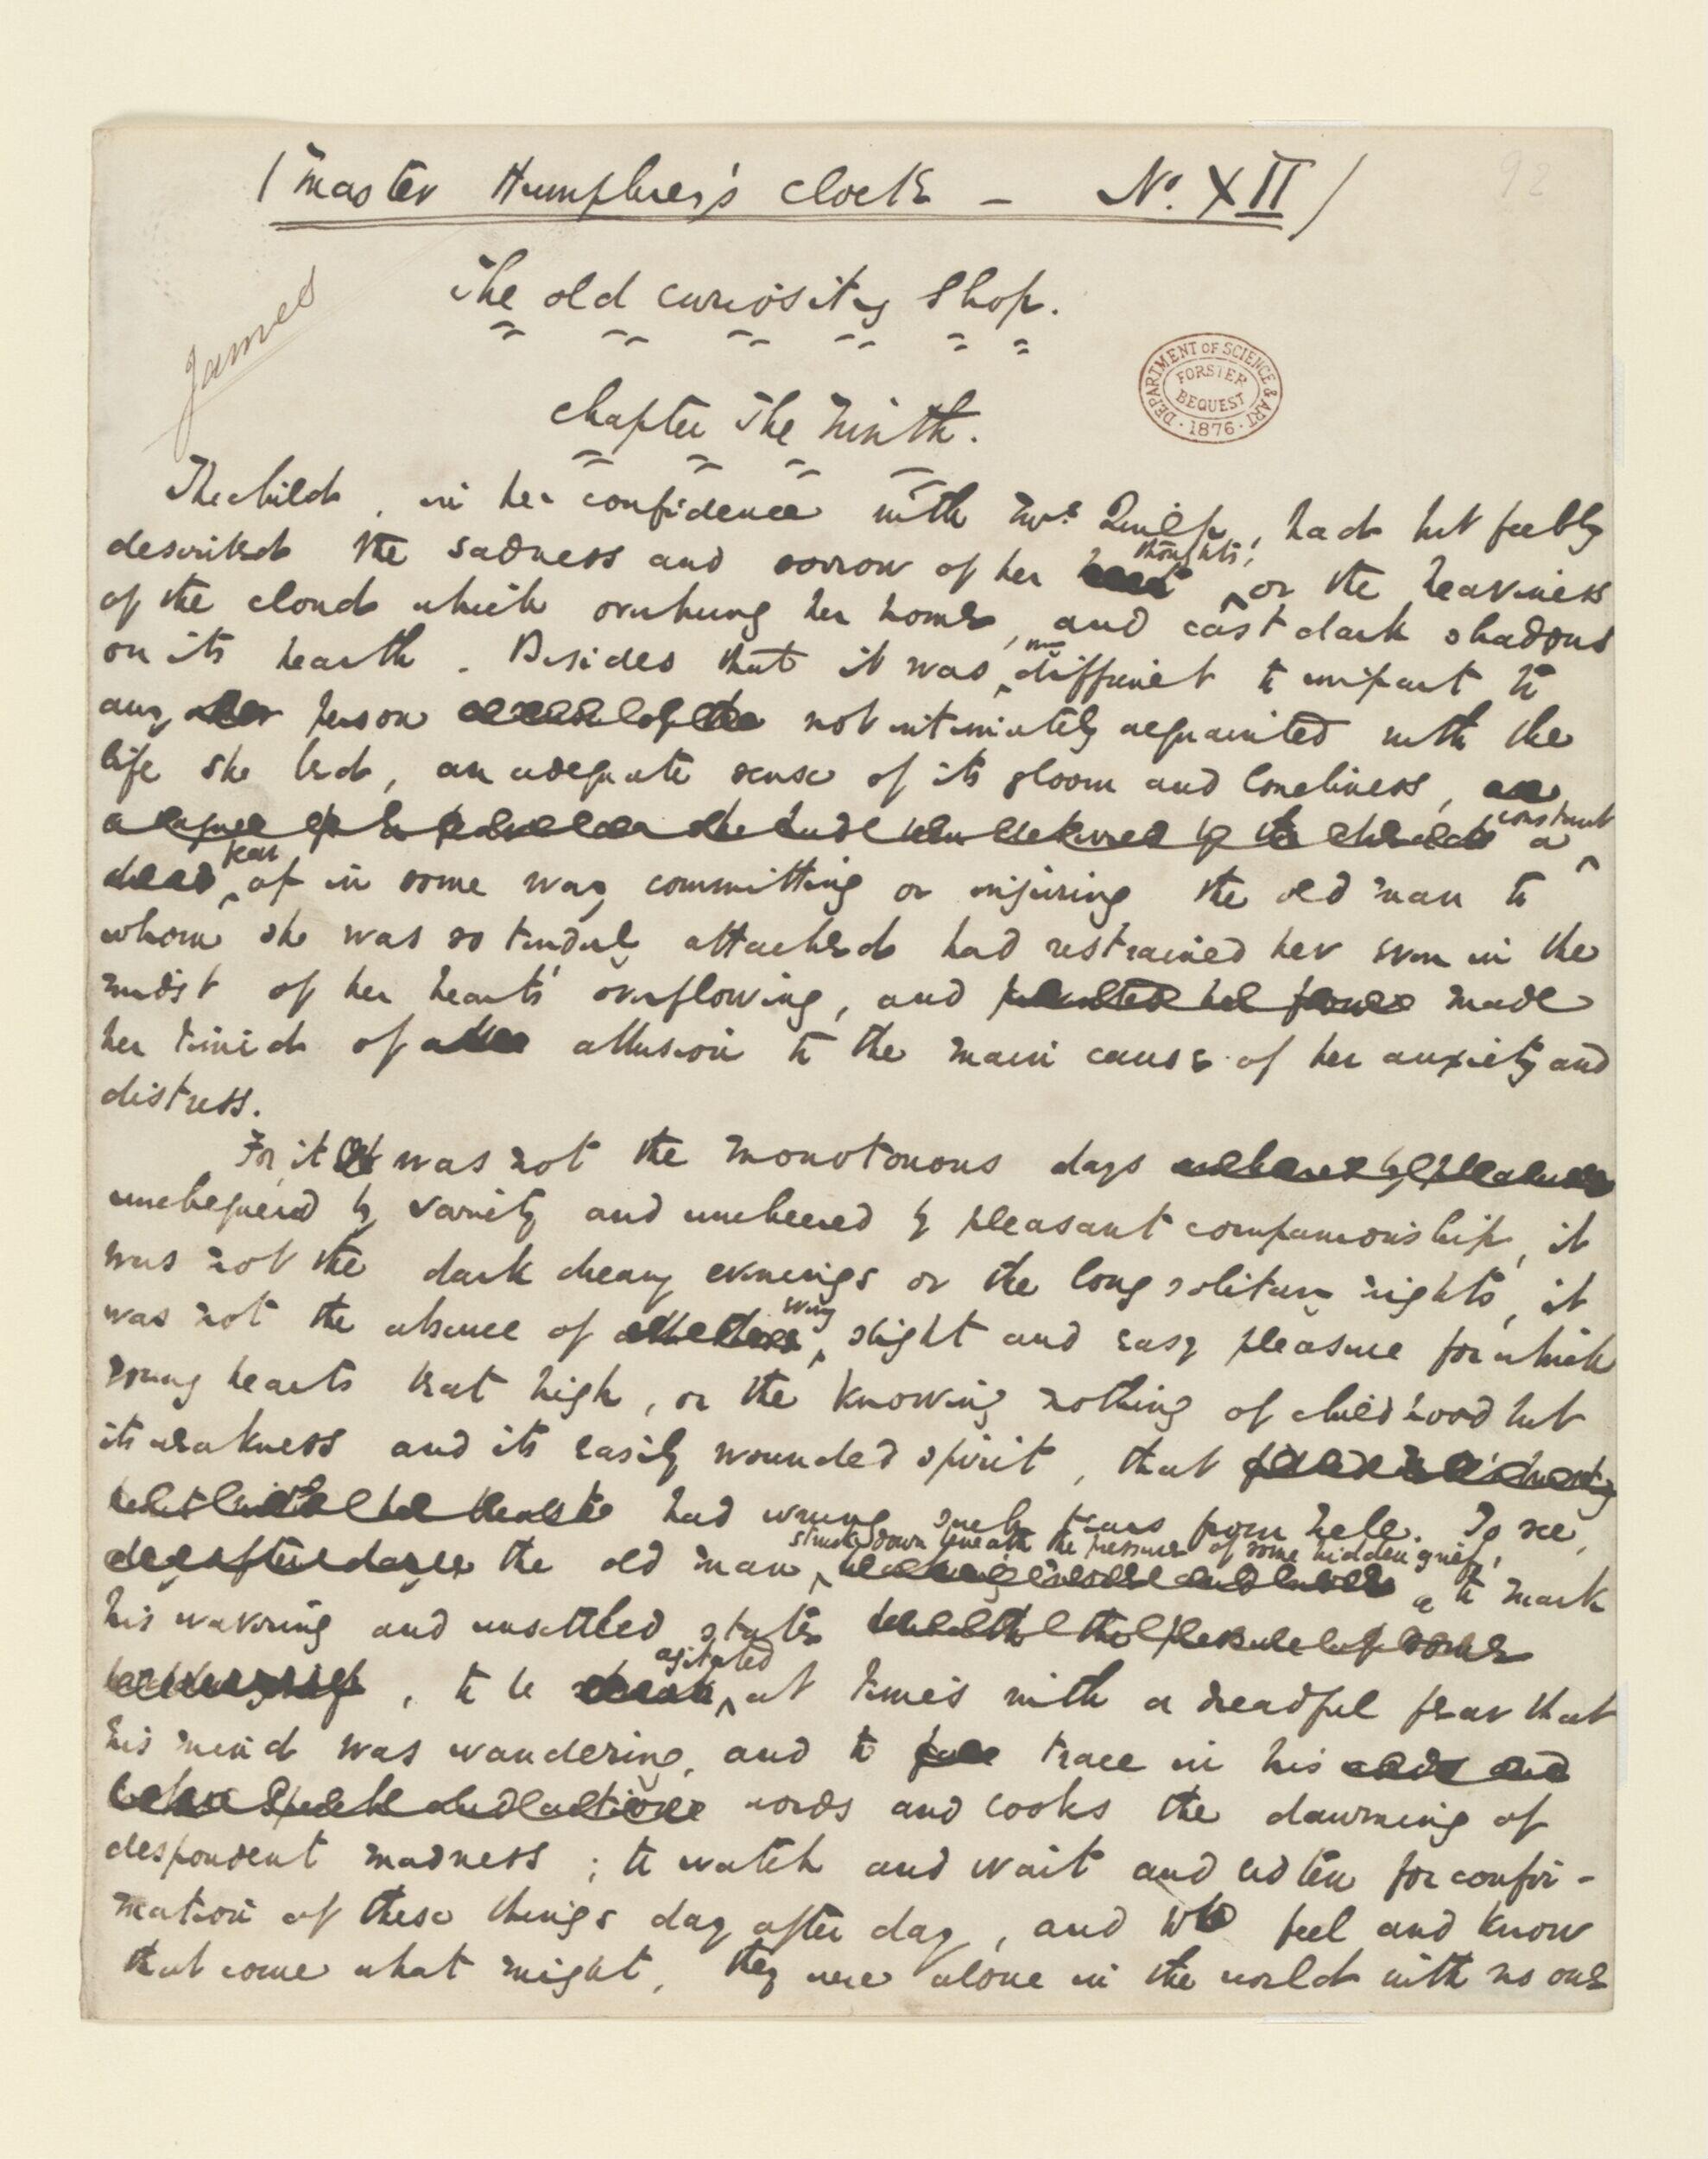 (Master Humphrey's Clock – No. XII)
92
James
The old curiosity Shop.
DEPARTMENT OF SCIENCE & ART
FORSTER
BEQUEST
· 1876 ·
Chapter The Ninth.
The child, in her confidence with Mrs. Quilp, had but feebly
thoughts,
described the sadness and sorrow of her or the heaviness
of the cloud which overhung her home, and cast dark shadows
on its hearth. Besides that it was difficult to impart to
any person not intimately acquainted with the
life she led, an adequate sense of its gloom and loneliness,
constant
a
fear
of in some way committing or injuring the old man to
whom she was so tenderly attached had restrained her even in the
midst of her heart's overflowing, and made
her timid of allusion to the main cause of her anxiety and
distress.
For, it was not the monotonous days
unchequered by variety and uncheered by pleasant companionship, it
was not the dark dreary evenings or the long solitary nights, it
every
was not the absence of slight and easy pleasure for which
young hearts beat high, or the knowing nothing of childhood but
its weakness and its easily wounded spirit, that
had wrung such tears from Nell. To see
struck down beneath the pressure of some hidden grief,
the old man to mark
his wavering and unsettled state
agitated
, to be at times with a dreadful fear that
his mind was wandering, and to trace in his
words and looks the dawning of
despondent madness ; to watch and wait and listen for confir-
mation of these things day after day, and to feel and know
that come what might, they were alone in the world with no one